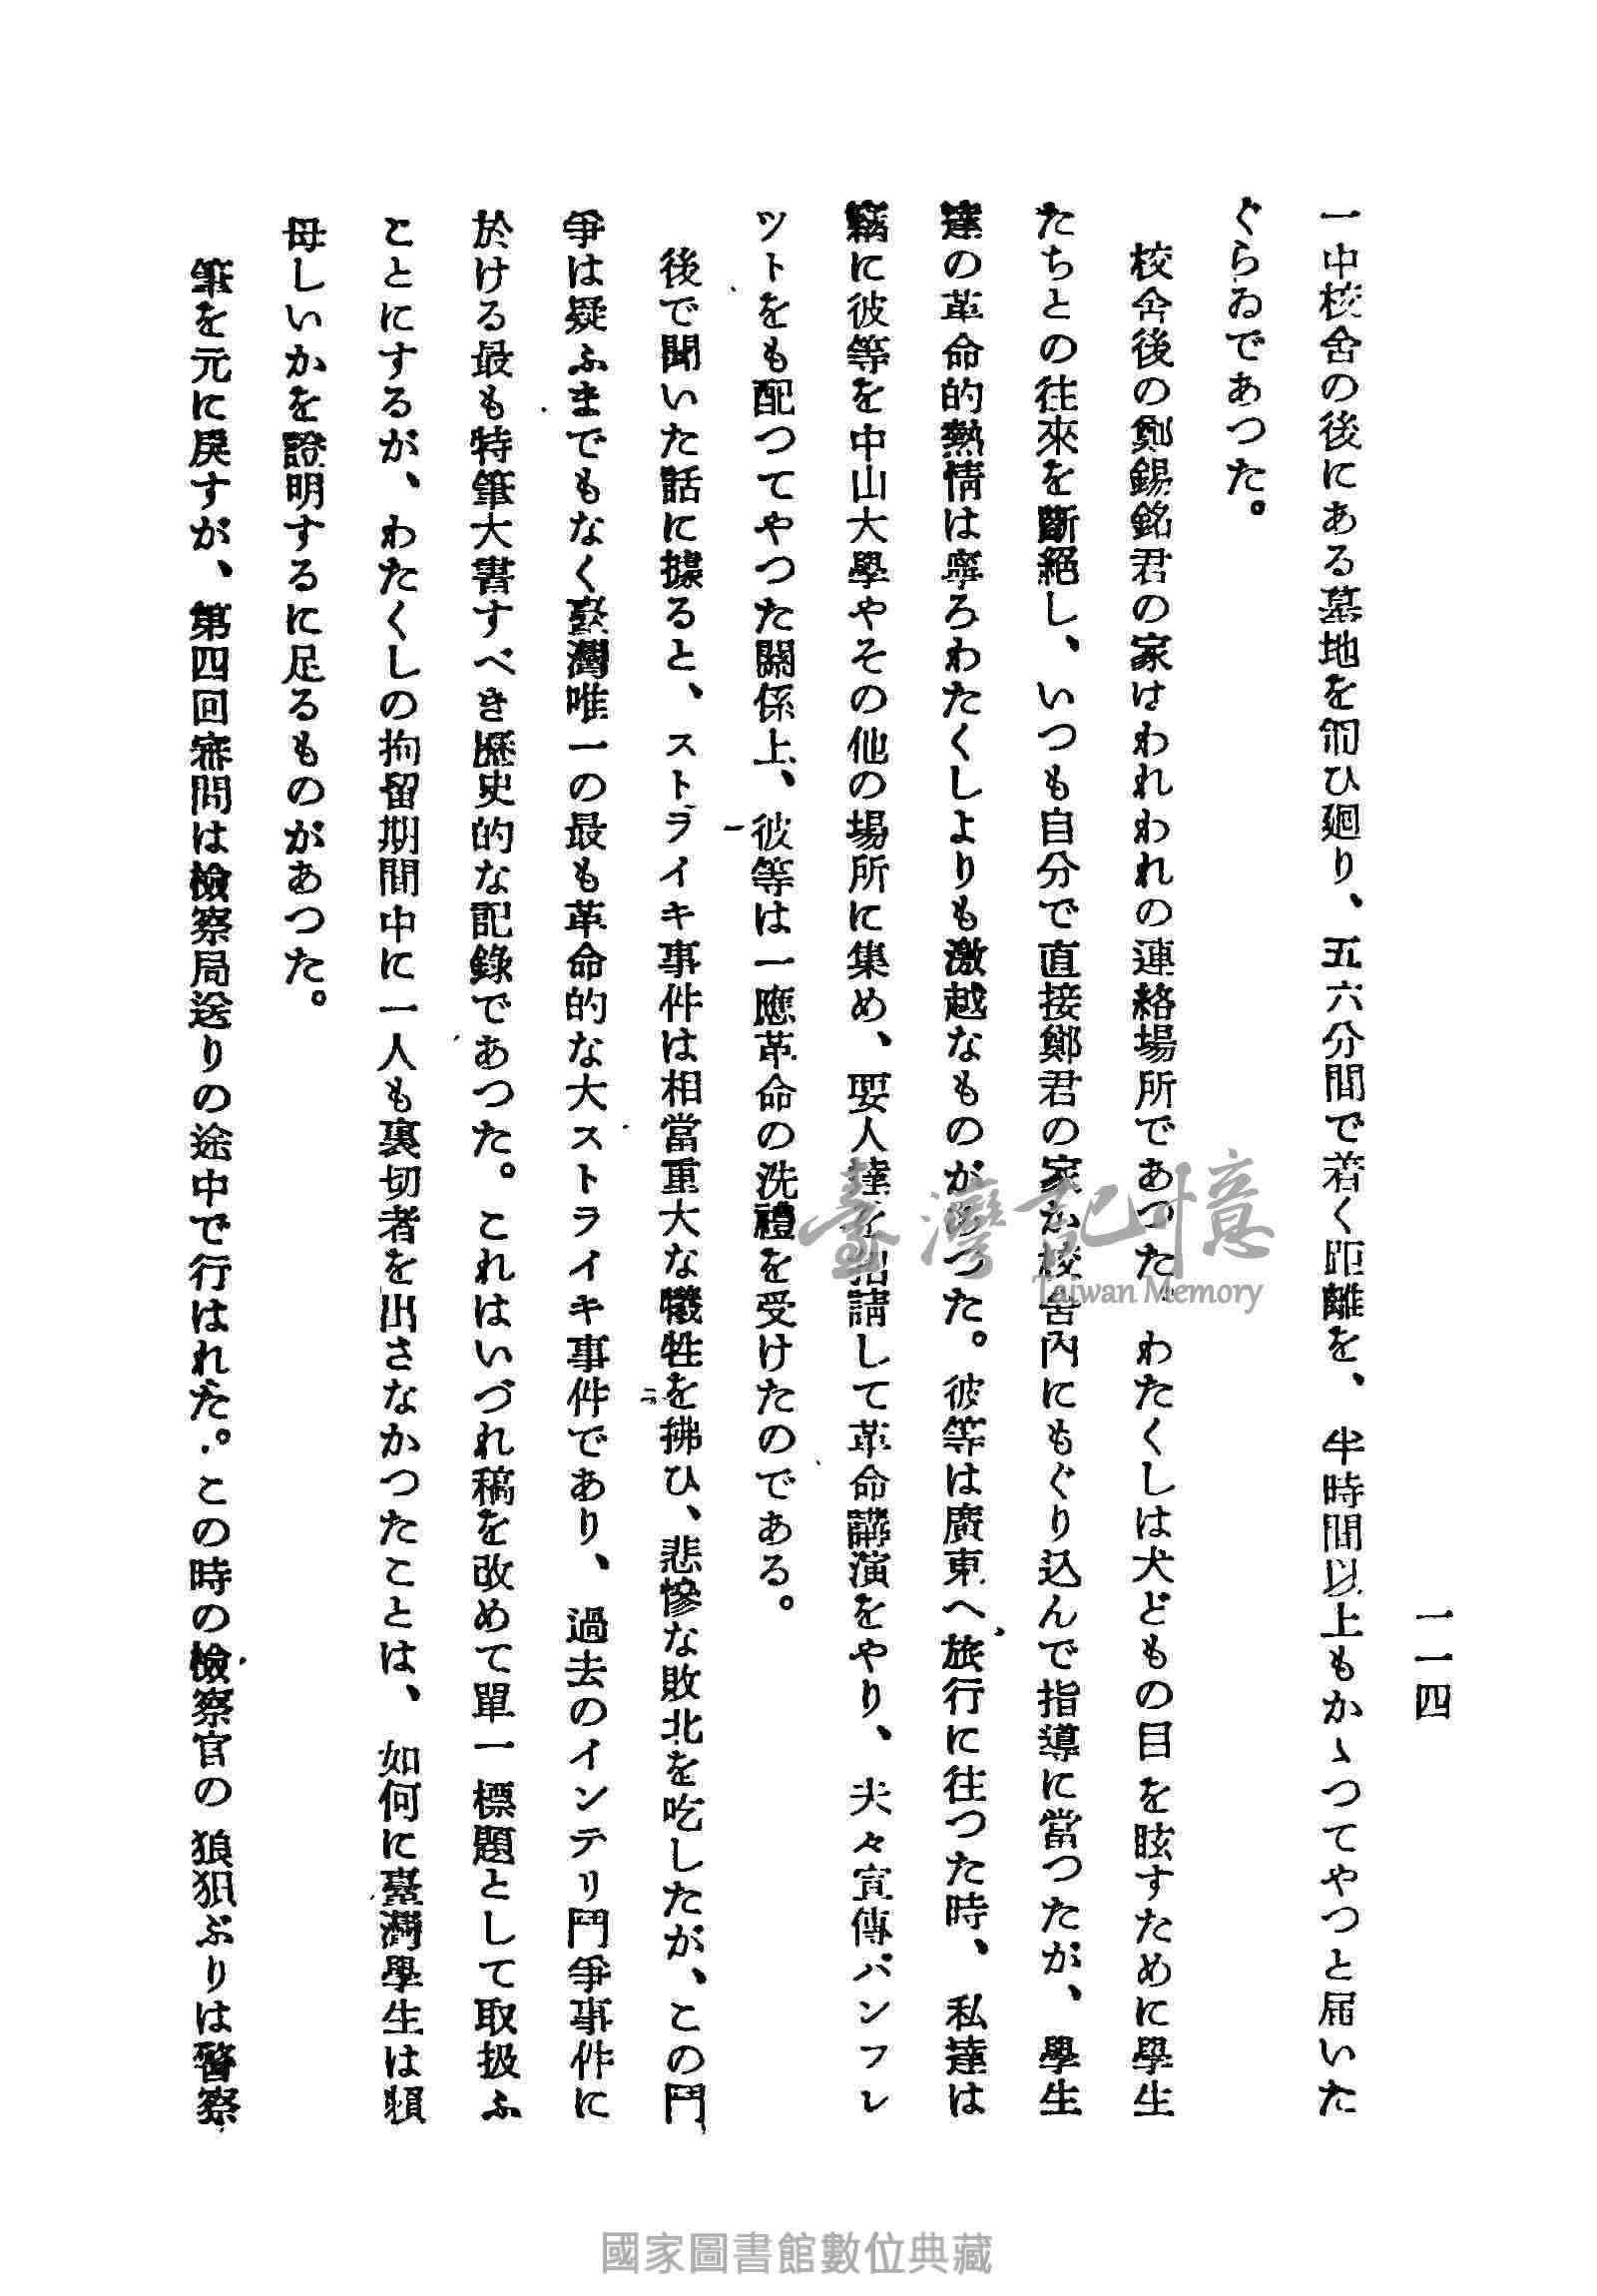 一一四
一中校舍の後にある墓地を匍ひ廻り、五六分間で着く距離を、半時間以上もかゝつてやつと届いた
ぐらゐであつた。
校舍後の鄭錫銘君の家はわれわれの連絡場所であつた。わたくしは犬どもの目を眩すために學生
たちとの往來を斷絕し、いつも自分で直接鄭君の家か校舍內にもぐり込んで指導に當つたが、學生
達の革命的熱情は寧ろわたくしよりも激越なものがあつた。彼等は廣東へ旅行に往つた時、私達は
竊に彼等を中山大學やその他の場所に集め、要人達を招請して革命講演をやり、夫々宣傳パンフレ
ツトをも配つてやつた關係上、彼等は一應革命の洗禮を受けたのである。
後で聞いた話に據ると、ストライキ事件は相當重大な犧牲を拂ひ、悲慘な敗北を吃したが、この鬥
爭は疑ふまでもなく臺灣唯一の最も革命的な大ストライキ事件であり、過去のインテリ鬥爭事件に
於ける最も特筆大書すべき歷史的な記錄であつた。これはいづれ稿を改めて單一標題として取扱ふ
ことにするが、わたくしの拘留期間中に一人も裏切者を出さなかつたことは、如何に臺灣學生は賴
母しいかを證明するに足るものがあつた。
筆を元に戾すが、第四回審問は檢察局送りの途中で行はれた。この時の檢察官の狼狽ぶりは警察
臺灣記憶
Taiwan Memory
國家圖書館數位典藏